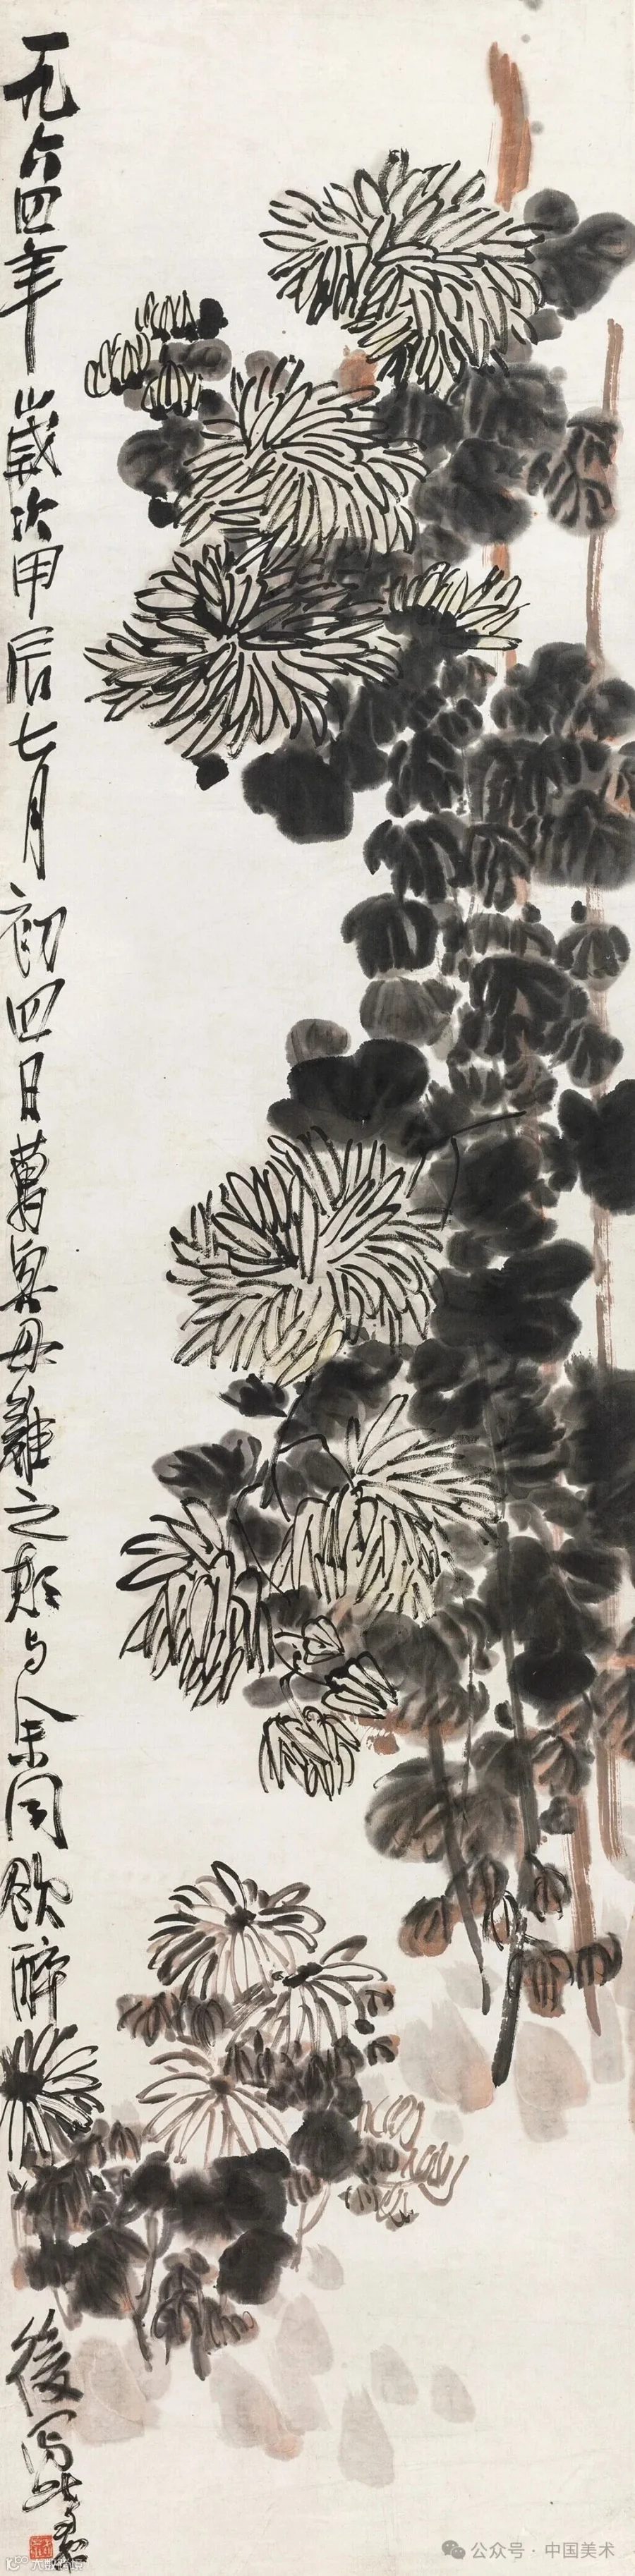 一九六四年歲次甲辰七月初四日曹與母難之期与余同飲醉後寫此
公众号 · 中国美术